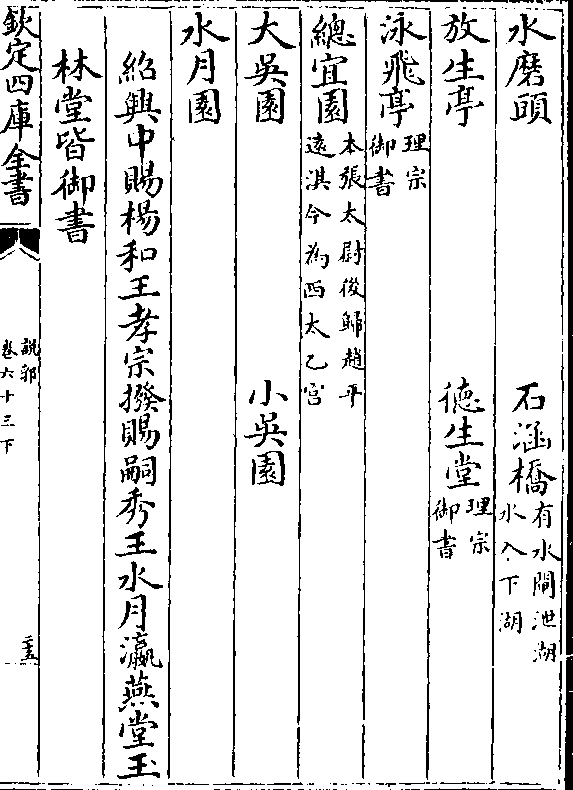 水磨頭 石涵橋有水閘泄湖水入下湖
放生亭 德生堂理宗御書
泳飛亭理宗御書
總宜園本張太尉後歸趙平遠淇今為西太乙宮
大吳園 小吳園
水月園
紹興中賜楊和王孝宗撥賜嗣秀王水月瀛燕堂玉
林堂皆御書
欽定四庫全書 說郛卷六十三下